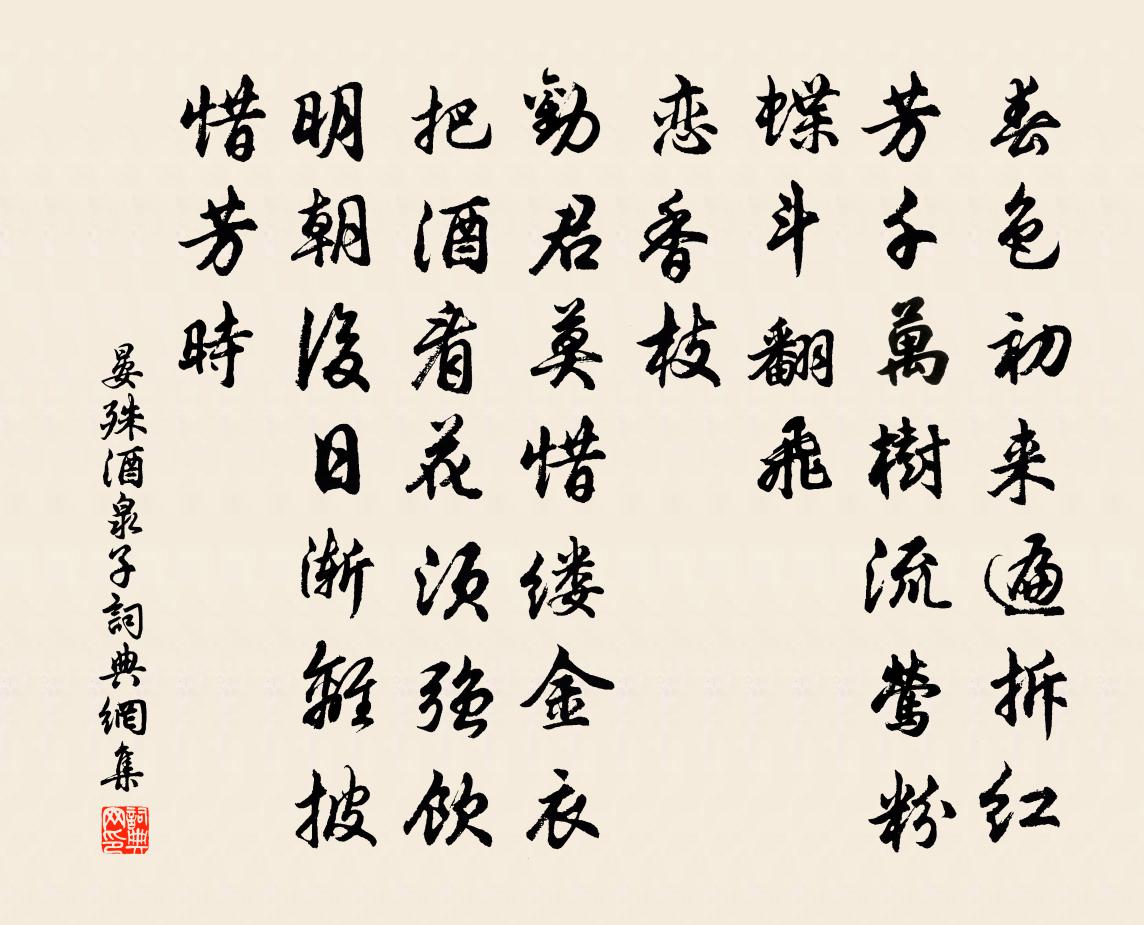 春色初来遍拆红
芳千萬樹流鶯粉
蝶斗翻飛
恋香枝
勸君莫惜缕金衣
把酒看花須强飲
明朝後日漸離披
惜芳時
晏殊酒泉子詞典網集
詞典网印